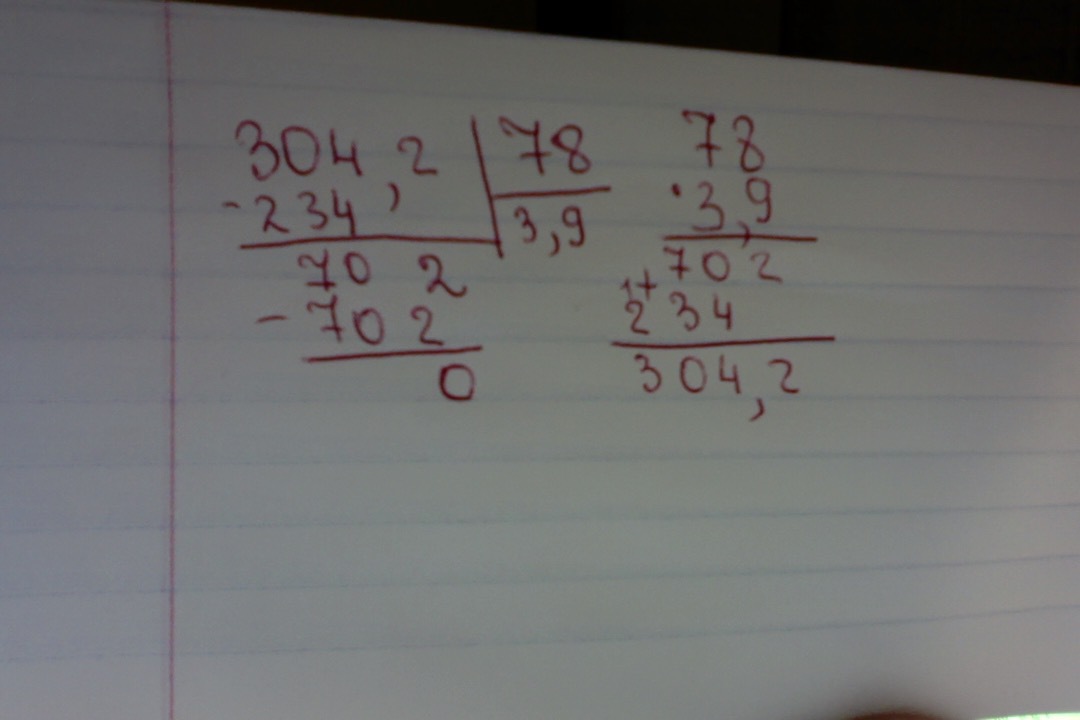 304,2 | 78
-234 | 3,9
70 2
- 702
0
78
· 3,9
702
+ 234
304,2